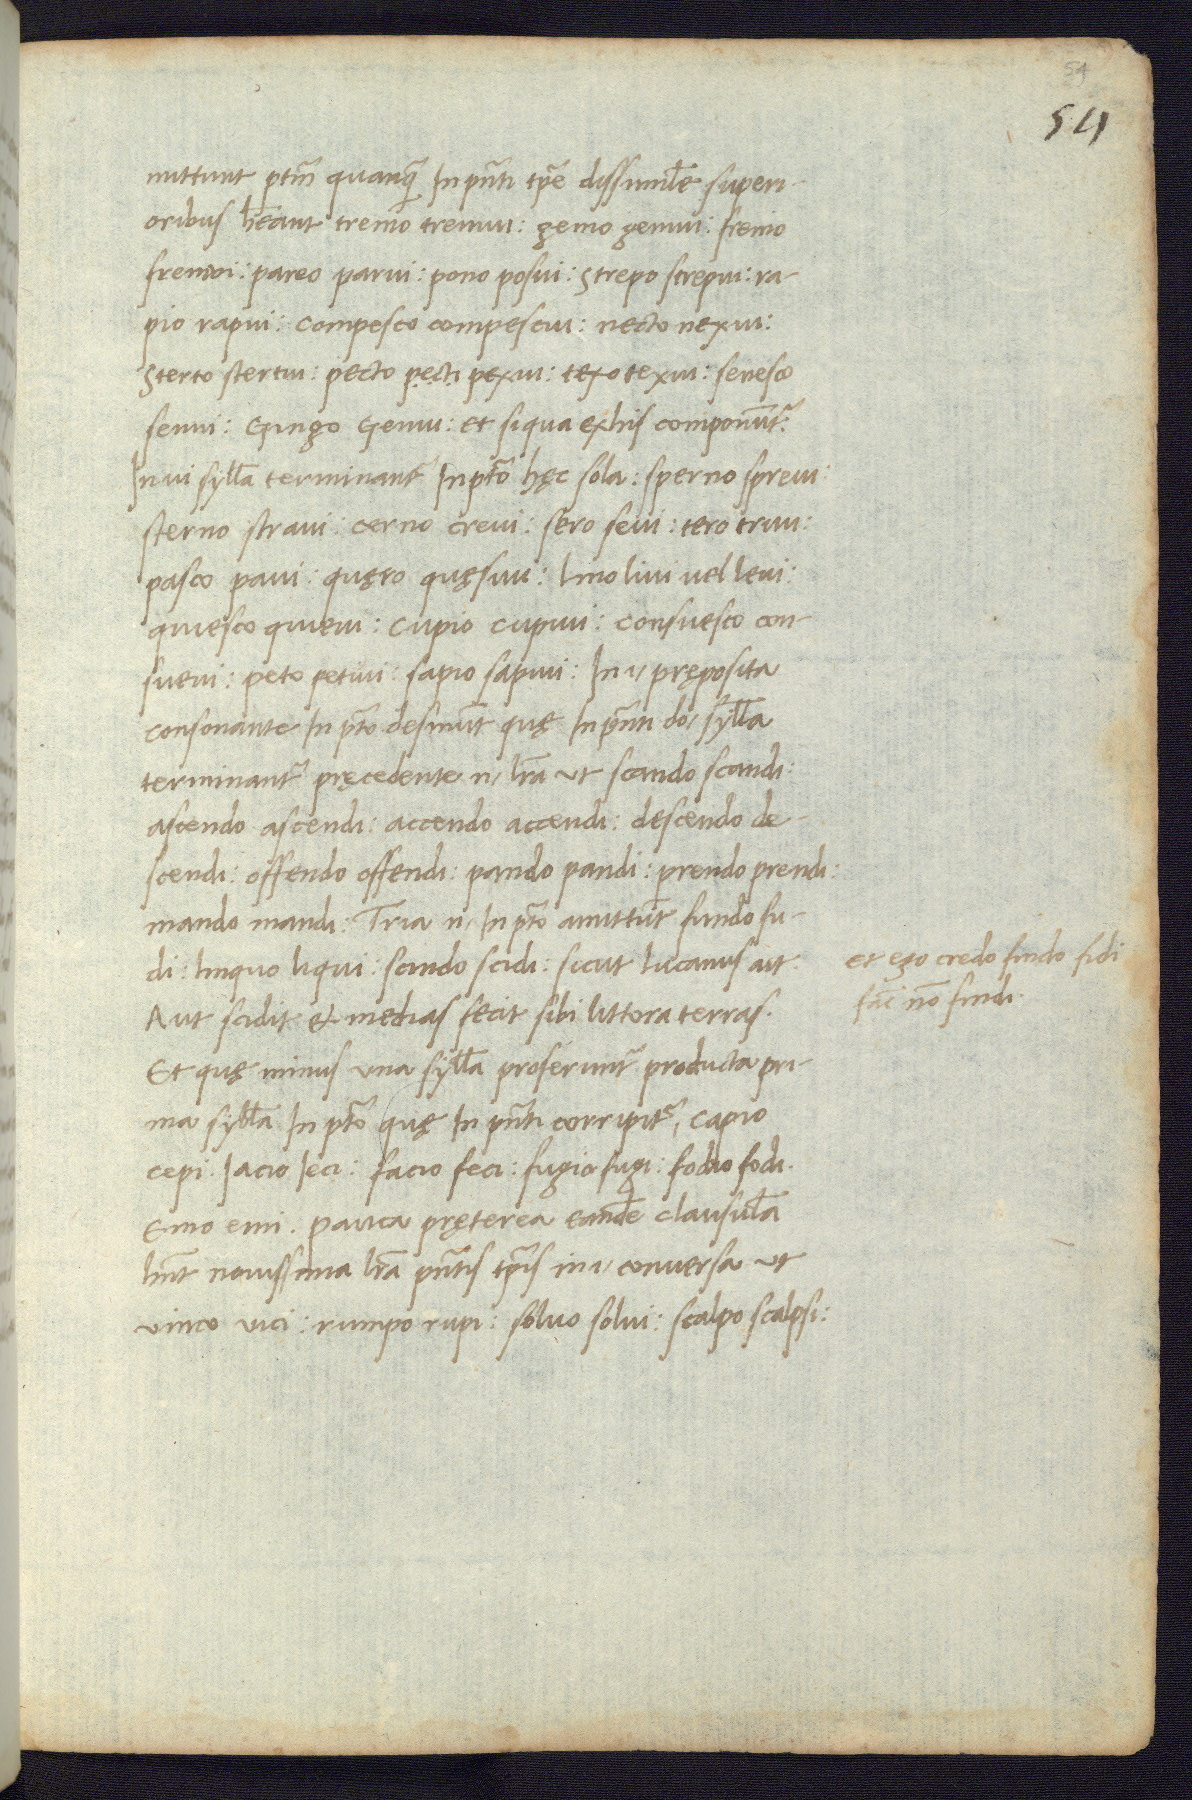 54
54
mittunt ptm̃ quanq̃ In pñti tp̃e dissimil̃e superi-
oribus hẽant tremo tremui: gemo gemui: fremo
fremui: pareo parui: pono posui: strepo strepui: ra-
pio rapui: compesco compescui: necto nexui:
Sterto stertui: pecto pecti pexui: texo texui: senesco
senui: Gingo Genui: et siqua ex his componũt᷑:
In ui syll̃a terminant᷑ In pt̃o hęc sola: sperno spreui:
sterno straui: cerno creui: sero seui: tero triui:
pasco paui: quęro quęsiui: lino liui uel leui:
quiesco quieui: cupio cupiui: consuesco con-
sueui: peto petiui: sapio sapiui: In i, pręposita
consonante In pt̃o desinũt quę In pñti do, syll̃a
terminant᷑ pręcedente n, lr̃a ut scando scandi:
ascendo ascendi: accendo accendi: descendo de-
scendi: offendo offendi: pando pandi: prendo prendi:
mando mandi: Tria n, In pt̃o amittũt fundo fu-
di: linquo liqui: scindo scidi: sicut lucanus ait.
Aut scidit et medias fecit sibi littora terras.
Et quę minus una syll̃a proferunt᷑ producta pri-
ma syll̃a In pt̃o quę In pñti corripit᷑, capio
cepi. Iacio Ieci: facio feci: fugio fugi: fodio fodi.
Emo emi. pauca pręterea eandẽ clausul̃a
hñt nouissima lr̃a pñtis tp̃is in i, conuersa ut
uinco uici: rumpo rupi: soluo solui: scalpo scalpsi:
et ego credo findo fidi
fac̃ nõ findi.